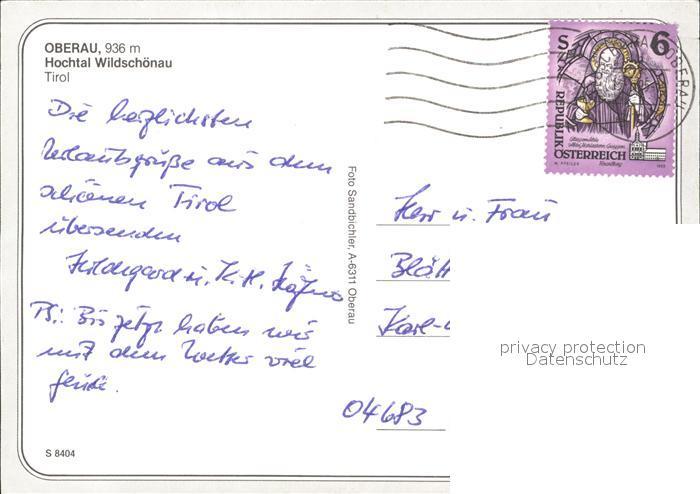 OBERAU, 936 m
Hochtal Wildschönau
Tirol
Die herzlichsten
Urlaubsgrüße aus dem
schönen Tirol
übersenden
Hildegard u. K.H.
PS: Bis jetzt haben wir
mit dem Wetter viel
Foto Sandbichler, A-6311 Oberau
S 6
REPUBLIK
ÖSTERREICH
OBERAU
Herr u. Frau
Blätt
Karl-
04683
privacy protection
Datenschutz
S 8404